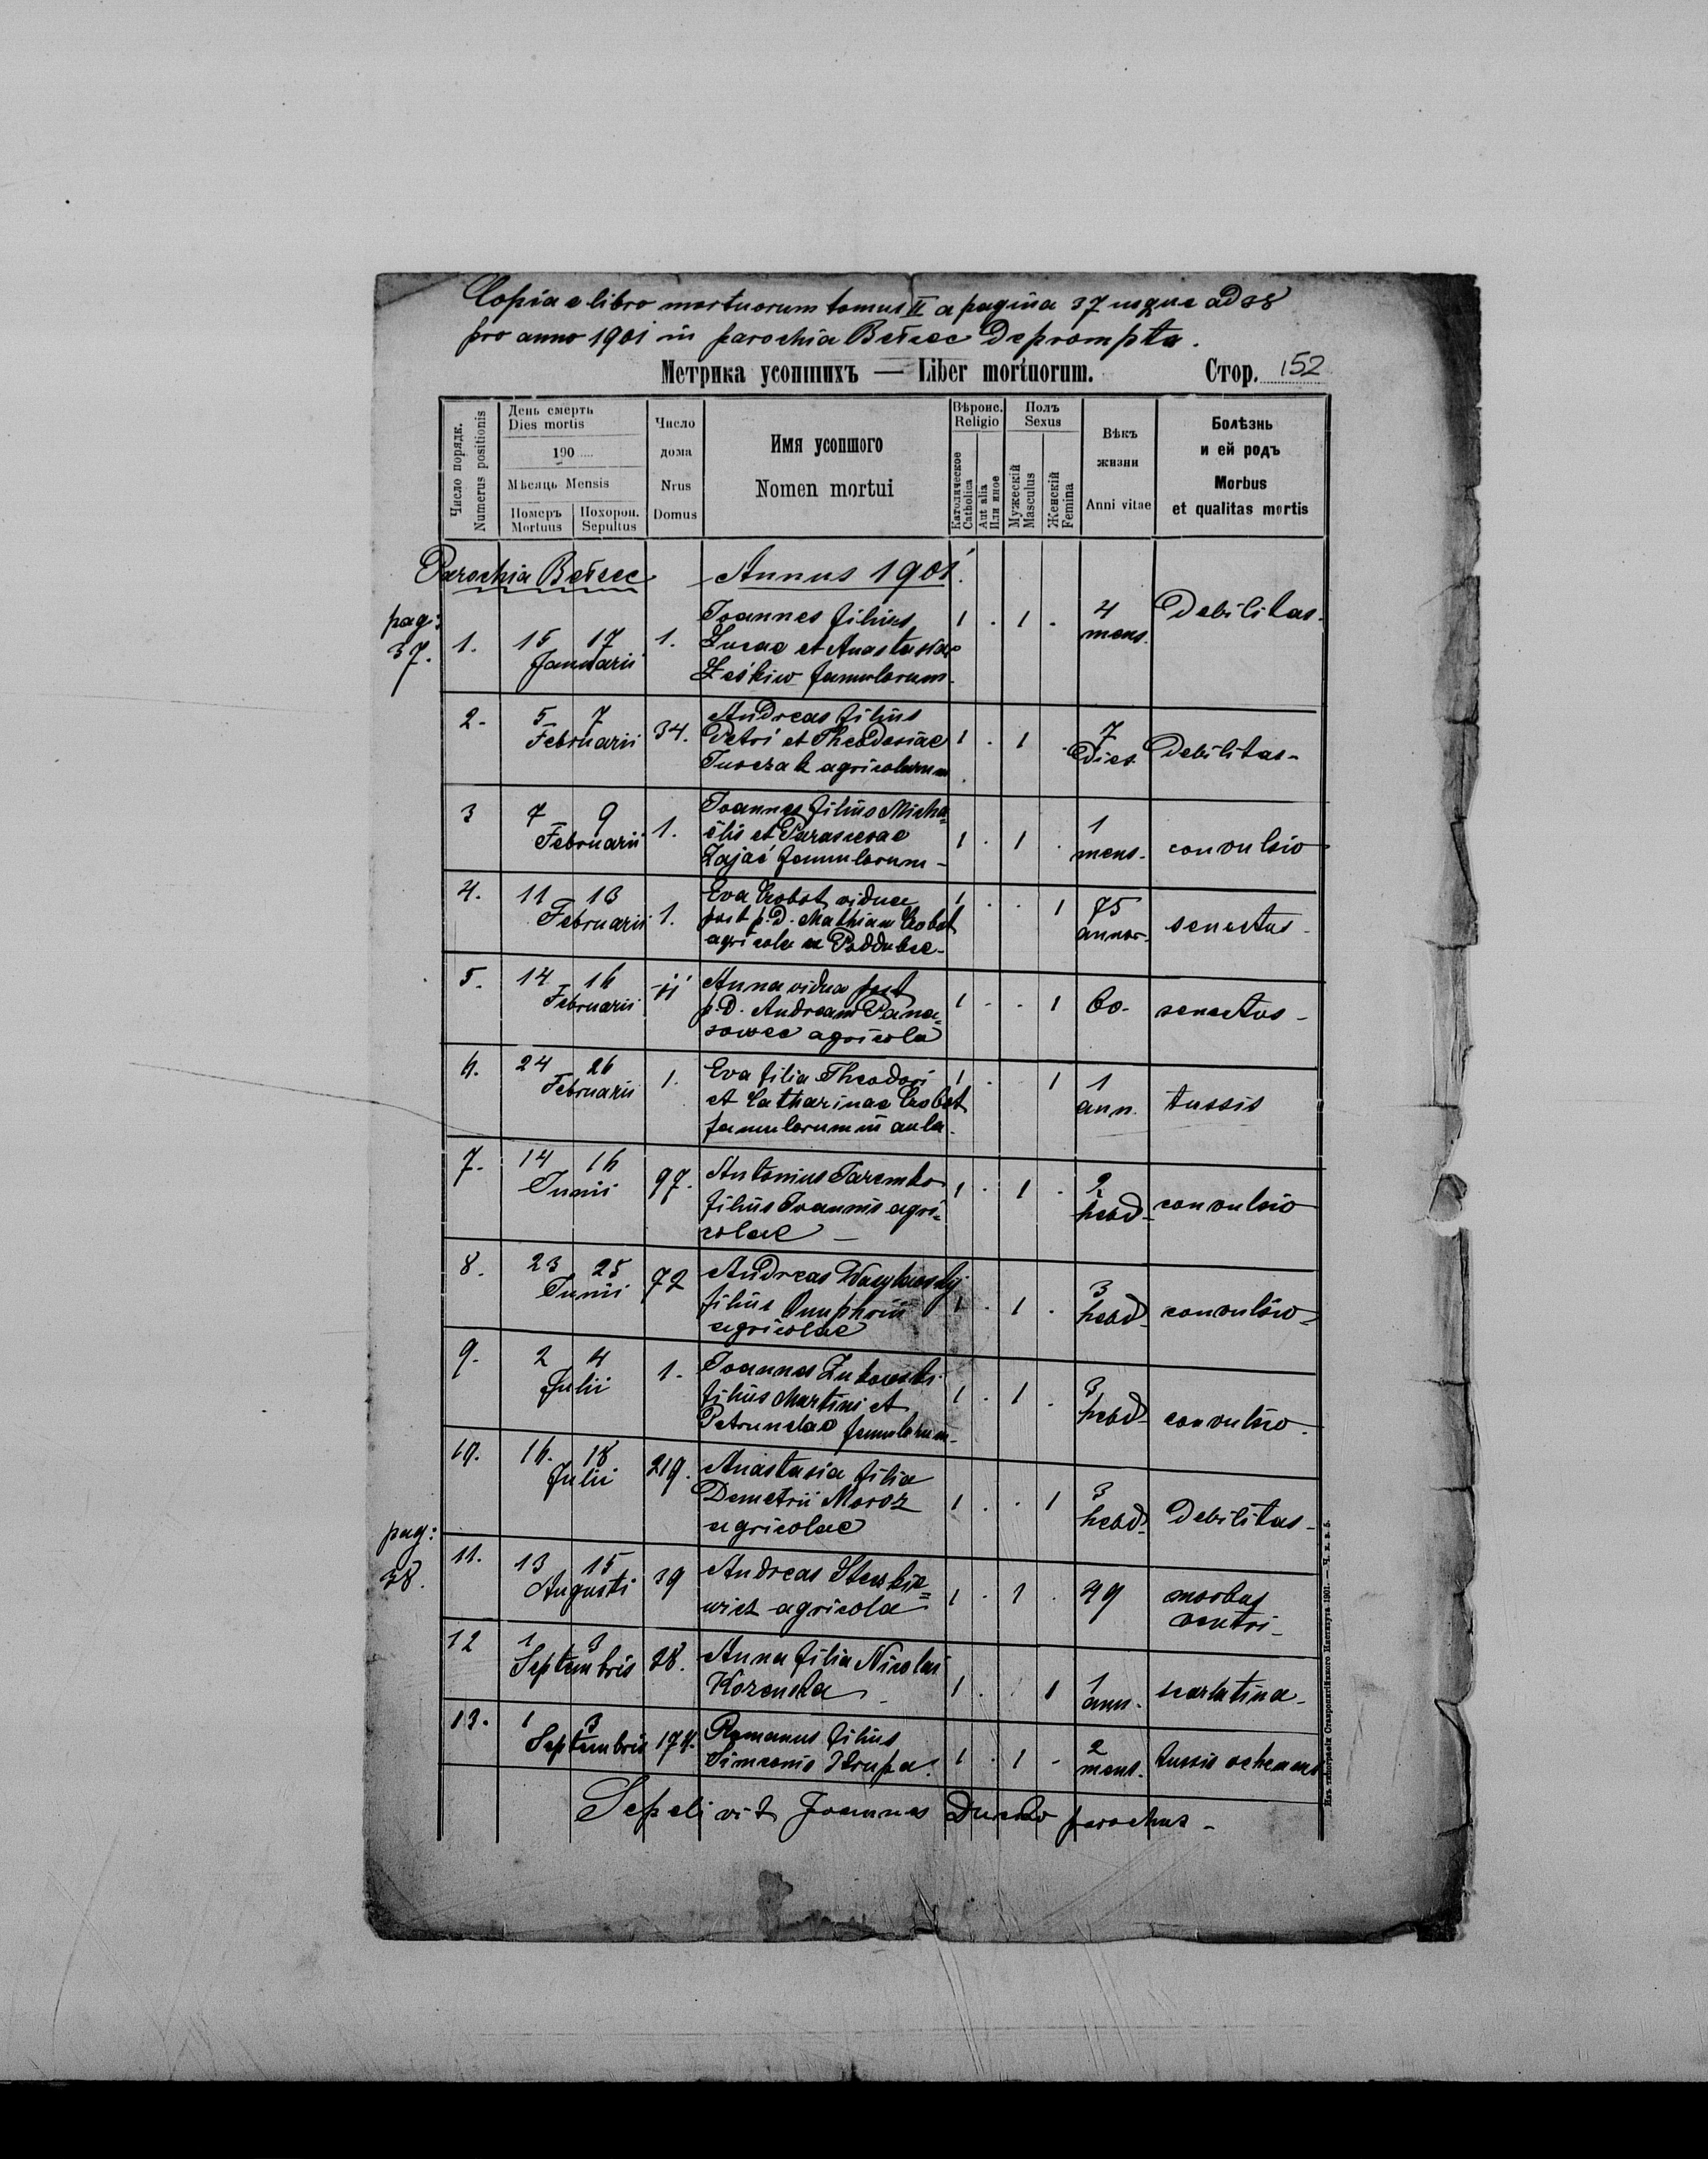 Copia e libro mortuorum tomus II a pagina 37 usque ad 38
pro anno 1901 in parochia Bełzec deprompta.
Метрика усопшихъ — Liber mortuorum. Стор. 152
Число порядк.
Numerus positionis
День смерть
Dies mortis
190
Мѣсяць Mensis
Померъ
Mortuus
Похорон.
Sepultus
Число
дома
Nrus
Domus
Имя усопшого
Nomen mortui
Вѣроис.
Religio
Католическое
Catholica
Aut alia
Или иное
Полъ
Sexus
Мужескій
Masculus
Женскій
Femina
Вѣкъ
жизни
Anni vitae
Болѣзнь
и ей родъ
Morbus
et qualitas mortis
Parochia Bełzec Annus 1901.
pag: 37.
1. 15 17 Januarii 1.
Joannes filius
Lucae et Anastasiae
Leśkiw famulorum
1 . 1 . 4 mens. Debilitas.
2. 5 7 Februarii 34.
Andreas filius
Petri et Theodosiae
agricolarum
1 . 1 . 7 dies Debilitas.
3 7 9 Februarii 1.
Joannes filius Micha=
ëlis et Parascevae
Zając famulorum
1 . 1 . 1 mens. convulsio
4. 11 13 Februarii 1.
Eva Chobot vidua
post p. D. Mathiam Chobot
agricola ex Poddubce
1 . . 1 75 annor. senectus
5. 14 16 Februarii 11
Anna vidua post
p. D. Andream Pana=
sowec agricola
1 . . 1 60. senectus
6. 24 26 Februarii 1.
Eva filia Theodori
et Catharinae Chobot
famulorum in aula
1 . 1 1 ann. tussis
7. 14 16 Junii 97.
Antonius Taremko
filius Joannis agri=
colae
1 . 1 . 2 hebd. convulsio
8. 23 25 Junii 72
Andreas
filius Onuphrii
agricolae
1 . 1 . 3 hebd. convulsio
9. 2 4 Julii 1.
Joannes Żukowski
filius Martini et
Petrunelae famulorum
1 . 1 . 3 hebd. convulsio
10. 16. 18 Julii 219.
Anastasia filia
Demetrii Moroz
agricolae
1 . . 1 3 hebd. Debilitas
pag: 38.
11. 13 15 Augusti 39
Andreas Steckie=
wicz agricola
1 . 1 . 49 morbus ventri
12 1 3 Septembris 28.
Anna filia Nicolai
Korenska
1 . 1 1 ann. scarlatina
13. 1 3 Septembris 174.
Romanus filius
Simeonis Krupa
1 . 1 . 2 mens. tussis vehemens
Sepelivit Joannes parochus
Изъ типографіи Ставропигійского Института 1901. — Ч. к. в. 5.